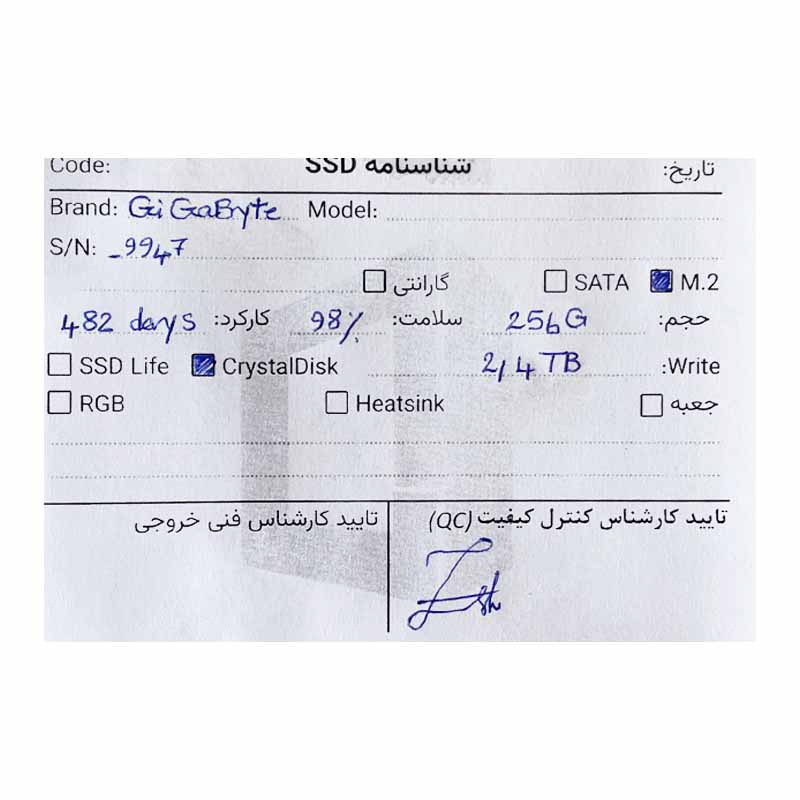 Code: شناسنامه SSD تاریخ:
Brand: GiGaByte Model:
S/N: _9947
گارانتی SATA M.2
حجم: 256G سلامت: 98% کارکرد: 482 days
SSD Life CrystalDisk 2,4 TB Write:
RGB Heatsink جعبه
تایید کارشناس کنترل کیفیت (QC) تایید کارشناس فنی خروجی